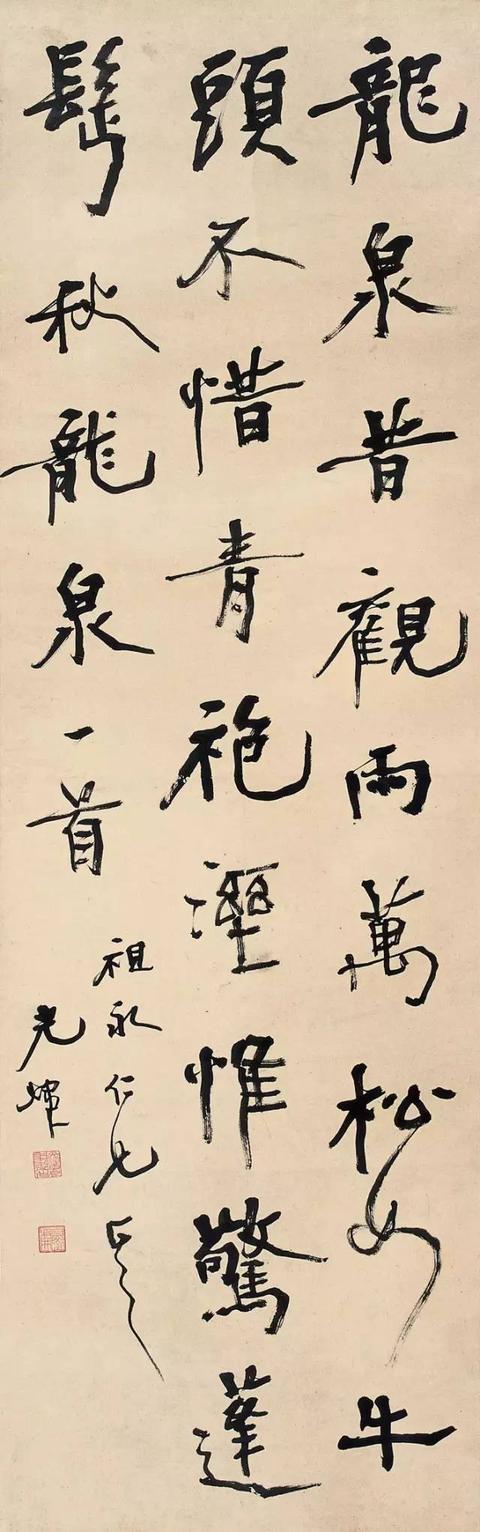 龍泉昔觀雨萬松如牛
頭不惜青袍溼惟驚蓬
鬢秋龍泉一首
祖永仁兄
光煒